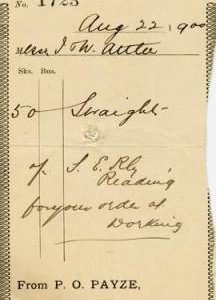 No. 1723
Aug 22 1900
Messrs J & W.
Sks. Bus.
50 Straight
% S. E. Rly
Reading
for your order at
Dorking
From P. O. PAYZE,